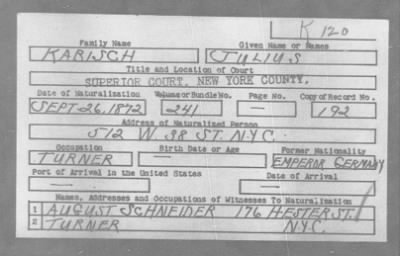 K 120
Family Name Given Name or Names
KARISCH JULIUS
Title and Location of Court
SUPERIOR COURT, NEW YORK COUNTY.
Date of Naturalization Volume or Bundle No. Page No. Copy of Record No.
SEPT. 26, 1872 241 — 192
Address of Naturalized Person
512 W. 38 ST. N.Y.C.
Occupation Birth Date or Age Former Nationality
TURNER — EMPEROR GERMANY
Port of Arrival in the United States Date of Arrival
— —
Names, Addresses and Occupations of Witnesses To Naturalization
1 AUGUST SCHNEIDER 176 HESTER ST.
2 TURNER N.Y.C.